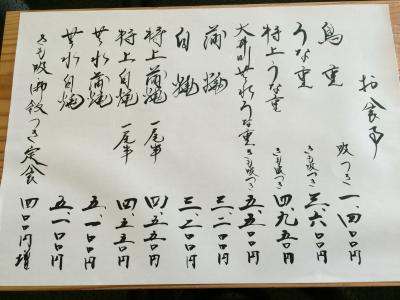 お食事
鳥重 吸つき 一、四〇〇円
うな重 きも吸つき 三、六〇〇円
特上うな重 きも吸つき 四、九五〇円
大井川共水うな重 きも吸つき 五、五〇〇円
蒲焼 三、二〇〇円
白焼 三、二〇〇円
特上蒲焼 一尾半 四、五五〇円
特上白焼 一尾半 四、五五〇円
共水蒲焼 五、一〇〇円
共水白焼 五、一〇〇円
きも吸御飯つき定食 四〇〇円増